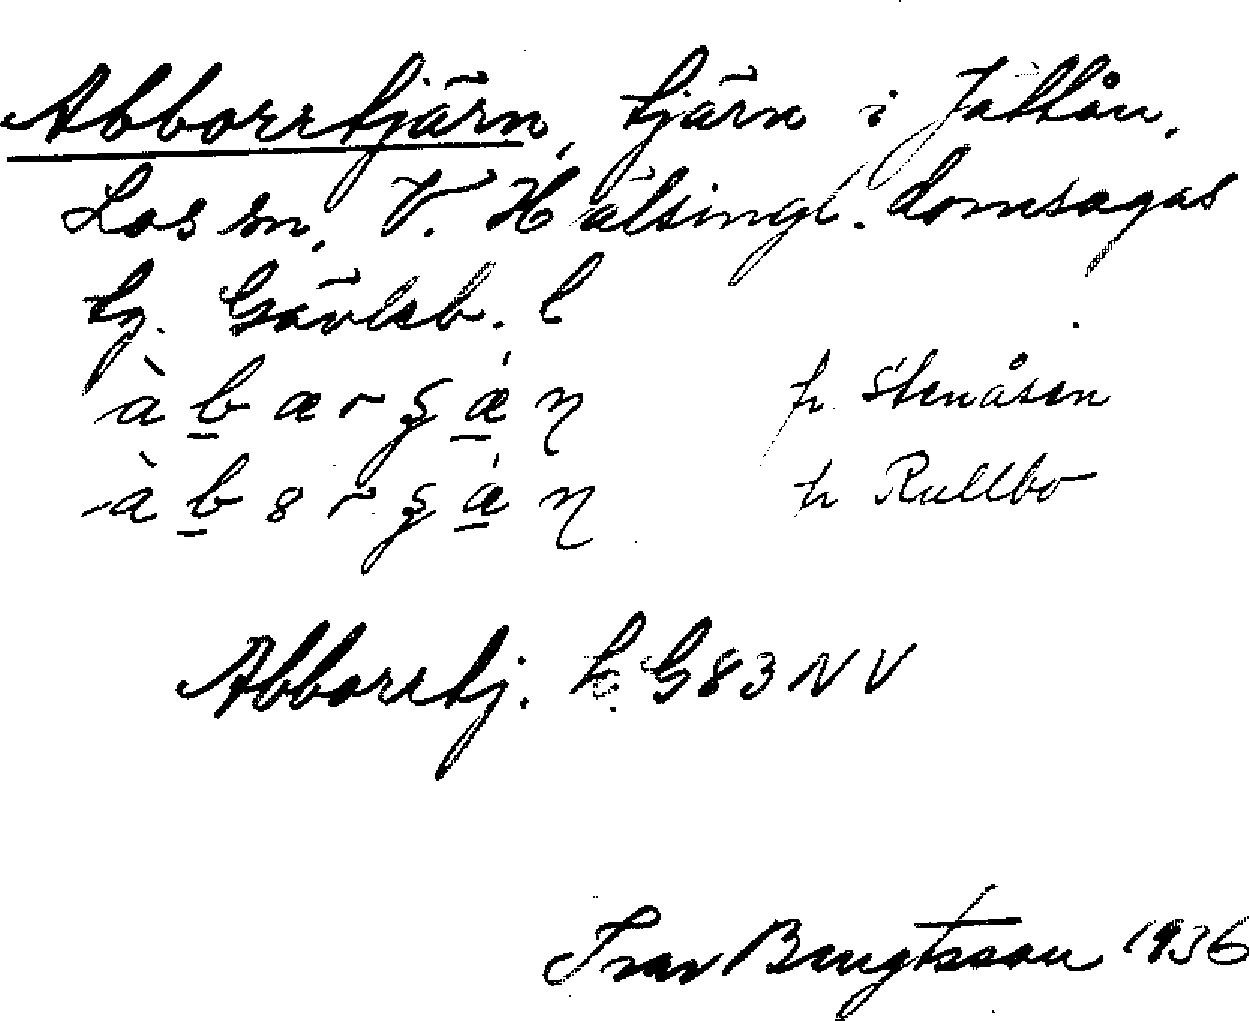 Abborrtjärn, tjärn i Jättån,
Los sn, V. Hälsingl. domsagas
tg. Gävleb. l
àbærʂǽn p. Stenåsen
àbɞrʂǽn p. Rullbo
Abborrtj. k. G83NV
Ivar Bengtsson 1936